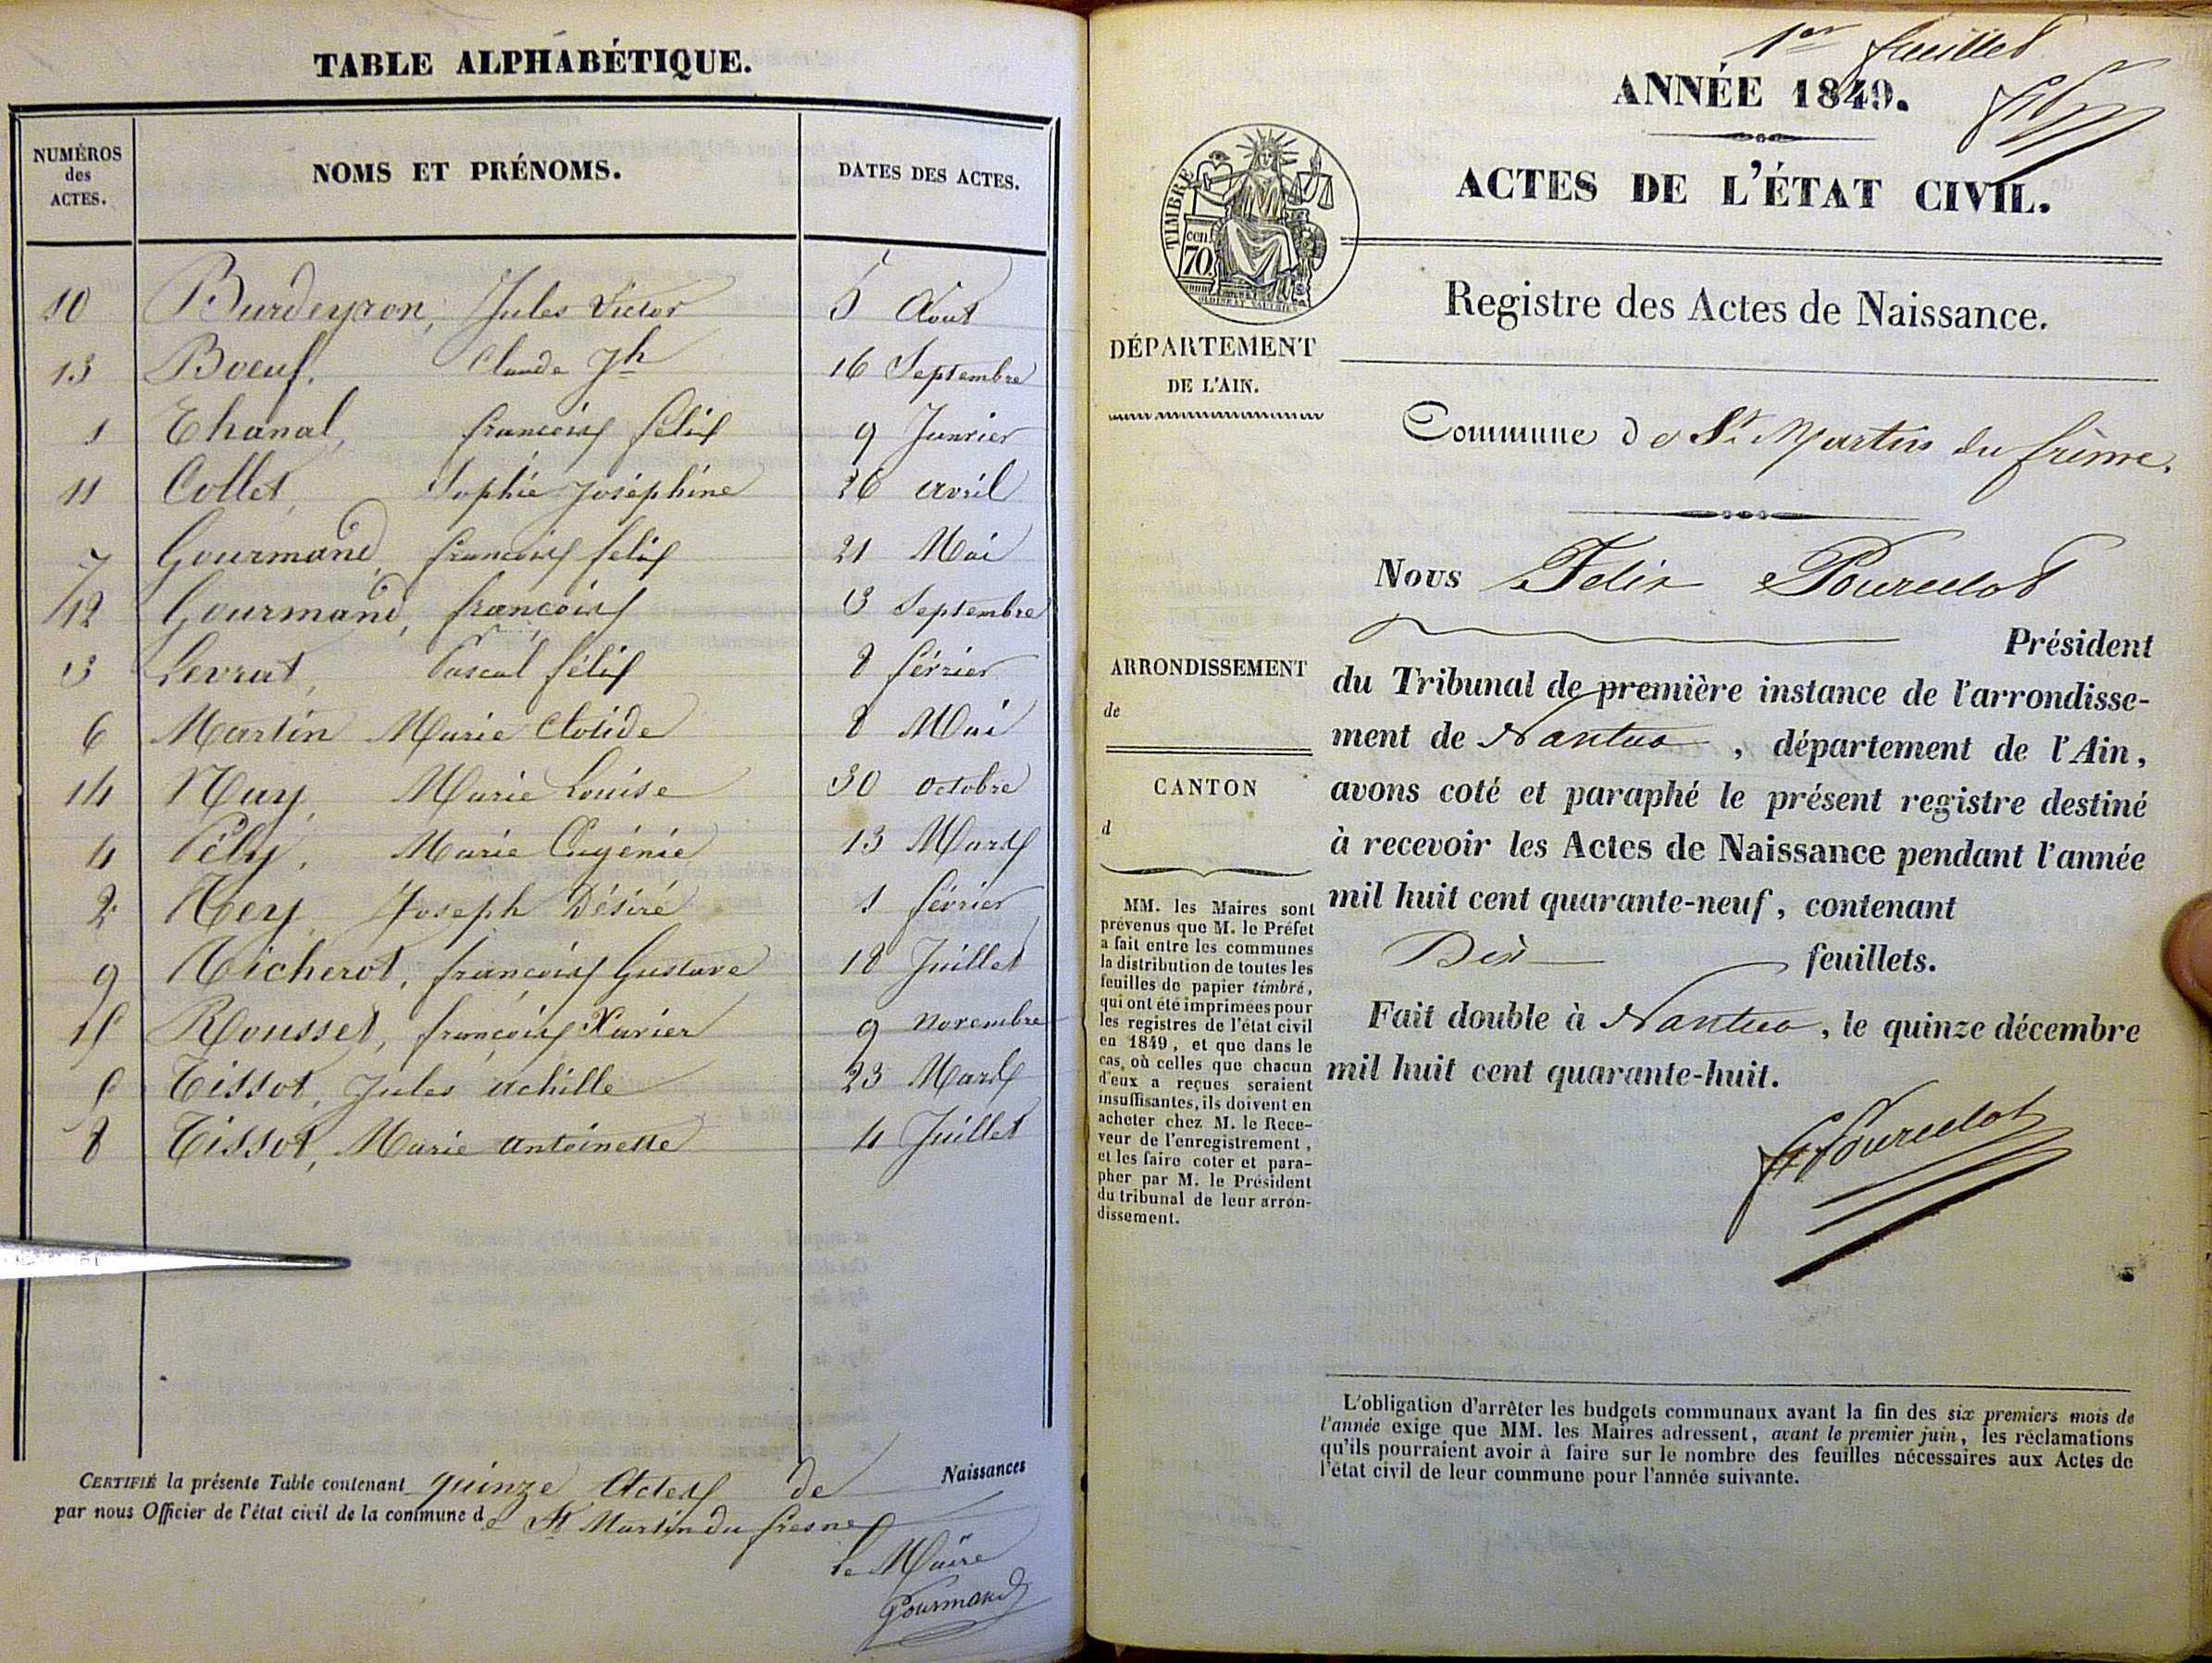 TABLE ALPHABÉTIQUE.
NUMÉROS des ACTES. NOMS ET PRÉNOMS. DATES DES ACTES.
10 Burdeyron, Jules Victor 5 Aout
13 Boeuf, Claude Jh 16 Septembre
1 Chanal, françois félix 9 Janvier
11 Collet, Sophie Joséphine 26 avril
7 Gourmand, françois félix 21 Mai
12 Gourmand, françois 13 Septembre
3 Levrat, Pascal félix 8 février
6 Martin Marie Clotide 8 Mai
14 Nay, Marie Louise 30 octobre
4 Péley, Marie Eugénie 13 Mars
2 Rey, Joseph Désiré 1 février
9 Richerot, françois Gustave 18 Juillet
15 Rousset, françois Xavier 9 novembre
5 Tissot, Jules achille 23 Mars
8 Tissot, Marie antoinette 4 Juillet
CERTIFIÉ la présente Table contenant quinze Actes de Naissances
par nous Officier de l'état civil de la commune de St Martin du fresne
le Maire
Gourmand
1er feuillet
ANNÉE 1849.
ACTES DE L'ÉTAT CIVIL.
TIMBRE
cen. 70.
Registre des Actes de Naissance.
DÉPARTEMENT
DE L'AIN.
Commune de St Martin du frêne.
Nous Felix Pourcelot
Président
ARRONDISSEMENT
de
CANTON
d
du Tribunal de première instance de l'arrondisse-
ment de Nantua, département de l'Ain,
avons coté et paraphé le présent registre destiné
à recevoir les Actes de Naissance pendant l'année
mil huit cent quarante-neuf, contenant
Dix feuillets.
Fait double à Nantua, le quinze décembre
mil huit cent quarante-huit.
F. Pourcelot
MM. les Maires sont
prévenus que M. le Préfet
a fait entre les communes
la distribution de toutes les
feuilles de papier timbré,
qui ont été imprimées pour
les registres de l'état civil
en 1849, et que dans le
cas, où celles que chacun
d'eux a reçues seraient
insuffisantes, ils doivent en
acheter chez M. le Rece-
veur de l'enregistrement,
et les faire coter et para-
pher par M. le Président
du tribunal de leur arron-
dissement.
L'obligation d'arrêter les budgets communaux avant la fin des six premiers mois de
l'année exige que MM. les Maires adressent, avant le premier juin, les réclamations
qu'ils pourraient avoir à faire sur le nombre des feuilles nécessaires aux Actes de
l'état civil de leur commune pour l'année suivante.